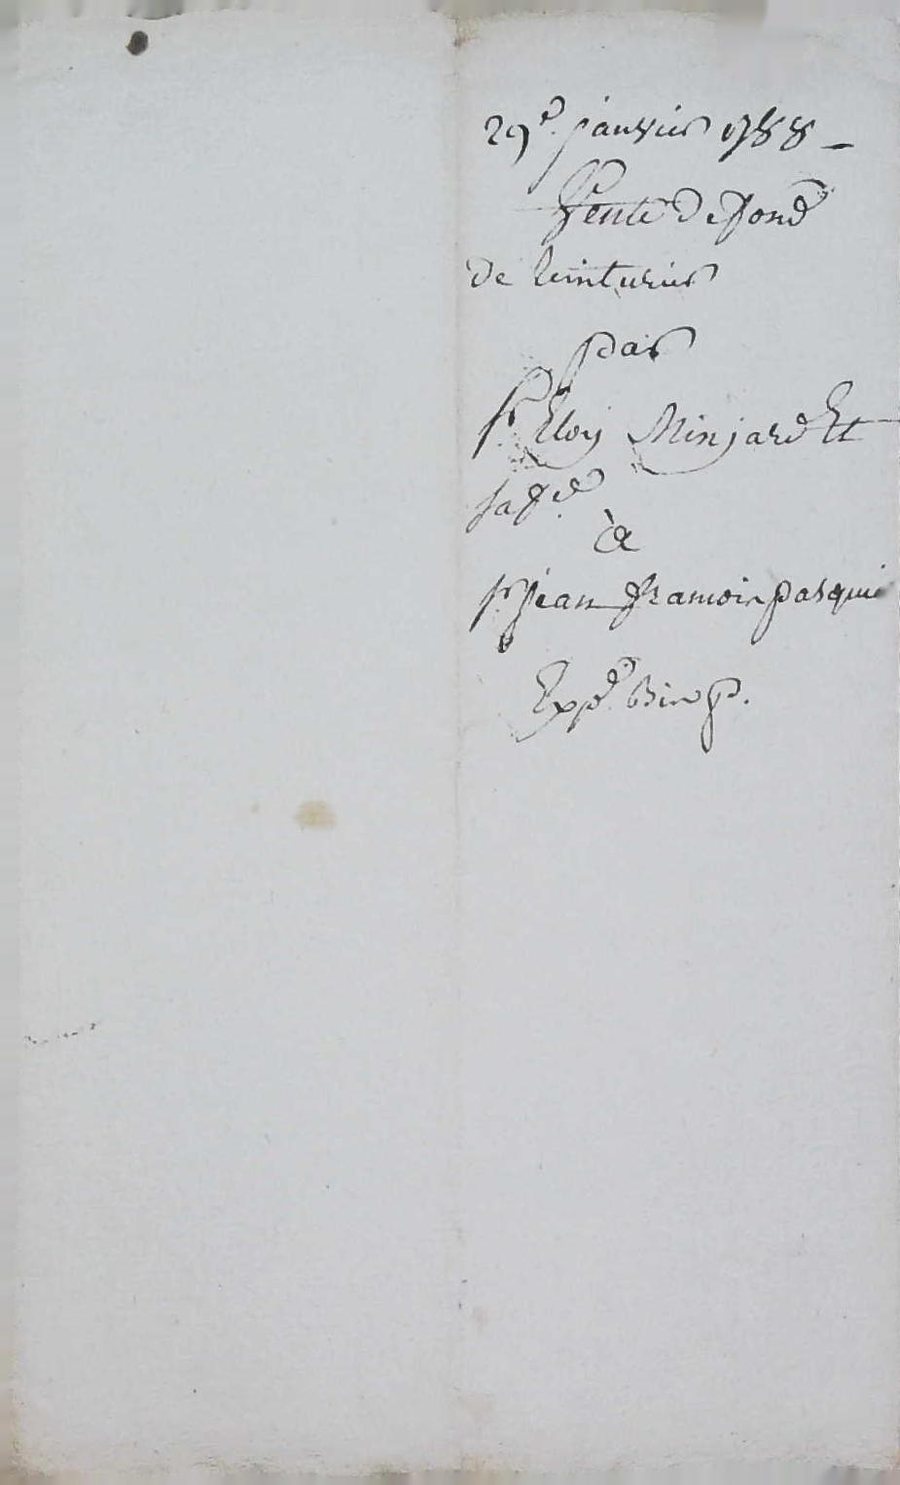 29e. janvier 1788 -
Vente de fond
de teinturier
par
Sr. Eloy Minjard Et
sa fe.
à
Sr. jean francois pasquie
Expd.